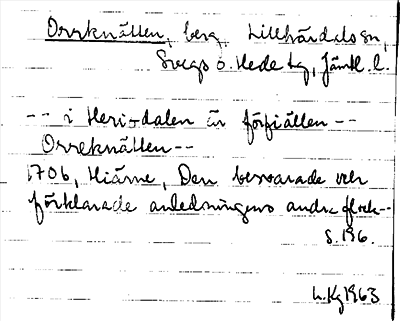 Orrknällen, berg, Lillhärdals sn,
Svegs o. Hede tg, Jämtl. l.
-- i Heri-dalen är förfiällen --
Orreknällen --
1706, Hiärne, Den beswarade och
förklarade anledningens andre flock--
S. 196.
1963